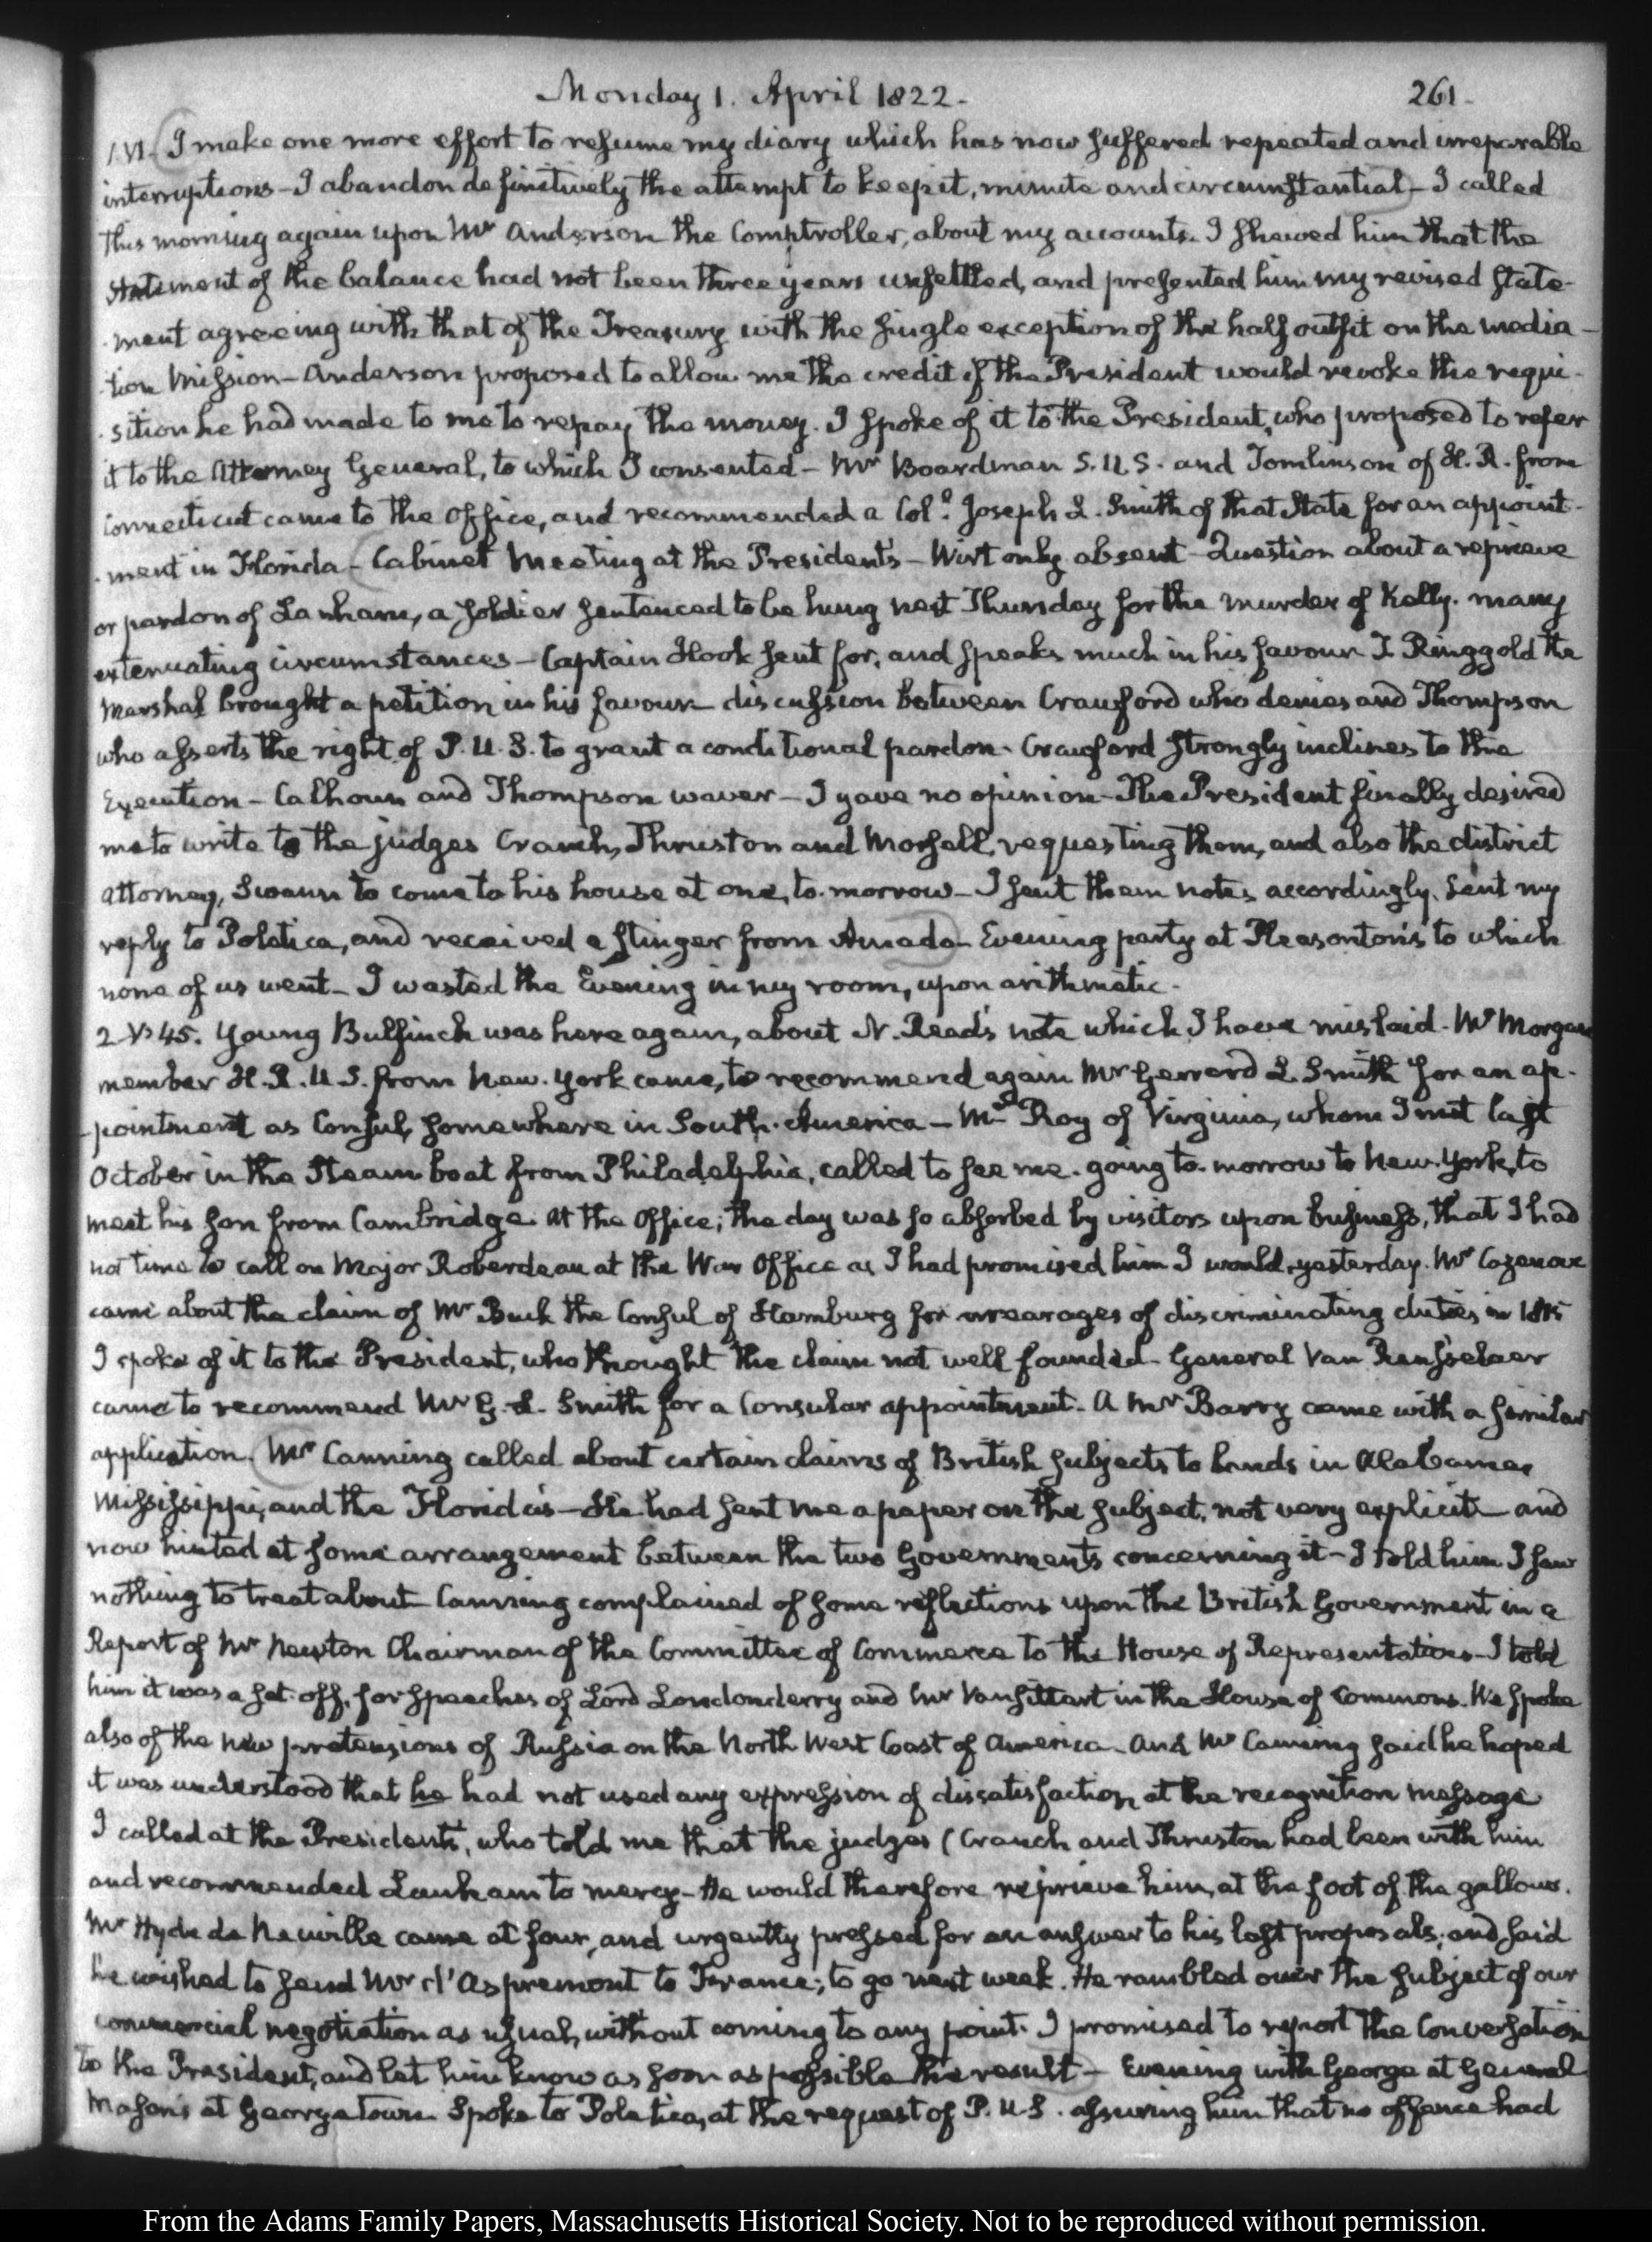 Monday 1. April 1822. 261.
1. VI. I make one more effort to resume my diary which has now suffered repeated and irreparable
interruptions – I abandon definitively the attempt to keep it, minute and circumstantial – I called
this morning again upon Mr Anderson the Comptroller, about my accounts. I shewed him that the
statement of the balance had not been three years unsettled, and presented him my revised state-
-ment agreeing with that of the Treasury with the single exception of the half outfit on the media-
-tion Mission – Anderson proposed to allow me the credit if the President would revoke the requi-
-sition he had made to me to repay the money. I spoke of it to the President, who proposed to refer
it to the Attorney General, to which I consented – Mr Boardman S. U.S. and Tomlinson of H. R. from
Connecticut came to the Office, and recommended a Coll. Joseph L. Smith of that State for an appoint-
-ment in Florida – Cabinet Meeting at the President's – Wirt only absent – Question about a reprieve
or pardon of Lanham, a soldier sentenced to be hung next Thursday for the murder of Kelly. many
extenuating circumstances – Captain Hook sent for, and speaks much in his favour T. Ringgold the
Marshal brought a petition in his favour – discussion between Crawford who denies and Thompson
who asserts the right of P. U. S. to grant a conditional pardon – Crawford strongly inclines to the
Execution – Calhoun and Thompson waver – I gave no opinion – The President finally desired
me to write to the judges Cranch, Thruston and Morsell, requesting them, and also the district
Attorney, Swann to come to his house at one, to-morrow – I sent them notes accordingly. Sent my
reply to Poletica, and received a stinger from Anduaga – Evening party at Pleasonton's to which
none of us went – I wasted the Evening in my room, upon arithmetic.
2. V:45. Young Bulfinch was here again, about N. Read's note which I have mislaid. Mr Morgan
member H. R. U. S. from New-York came, to recommend again Mr Gerrard L. Smith for an ap-
-pointment as Consul, somewhere in South-America – Mr Roy of Virginia, whom I met last
October in the Steam boat from Philadelphia, called to see me. going to-morrow to New-York, to
meet his son from Cambridge. At the Office; the day was so absorbed by visitors upon business, that I had
not time to call on Major Roberdeau at the War Office as I had promised him I would, yesterday. Mr Cazenove
came about the claim of Mr Buck the Consul of Hamburg for arrearages of discriminating duties in 1815
I spoke of it to the President, who thought the claim not well founded – General Van Rensselaer
came to recommend Mr G. L. Smith for a Consular appointment. A Mr Barry came with a similar
application. Mr Canning called about certain claims of British subjects to lands in Alabama,
Mississippi, and the Florida's – He had sent me a paper on the subject, not very explicit and
now hinted at some arrangement between the two Governments concerning it – I told him I saw
nothing to treat about – Canning complained of some reflections upon the British Government in a
Report of Mr Newton Chairman of the Committee of Commerce to the House of Representatives – I told
him it was a set-off, for speeches of Lord Londonderry and Mr Vansittart in the House of Commons. We spoke
also of the new pretensions of Russia on the North West Coast of America – And Mr Canning said he hoped
it was understood that he had not used any expression of dissatisfaction at the recognition message
I called at the President's, who told me that the judges (Cranch and Thruston had been with him
and recommended Lanham to mercy – He would therefore reprieve him, at the foot of the gallows.
Mr Hyde de Neuville came at four, and urgently pressed for an answer to his last proposals; and said
he wished to send Mr d'Aspremont to France; to go next week. He rambled over the subject of our
commercial negotiation as usual, without coming to any point. I promised to report the Conversation
to the President, and let him know as soon as possible the result – Evening with George at General
Mason's at Georgetown Spoke to Poletica, at the request of P. U. S. assuring him that no offence had
From the Adams Family Papers, Massachusetts Historical Society. Not to be reproduced without permission.